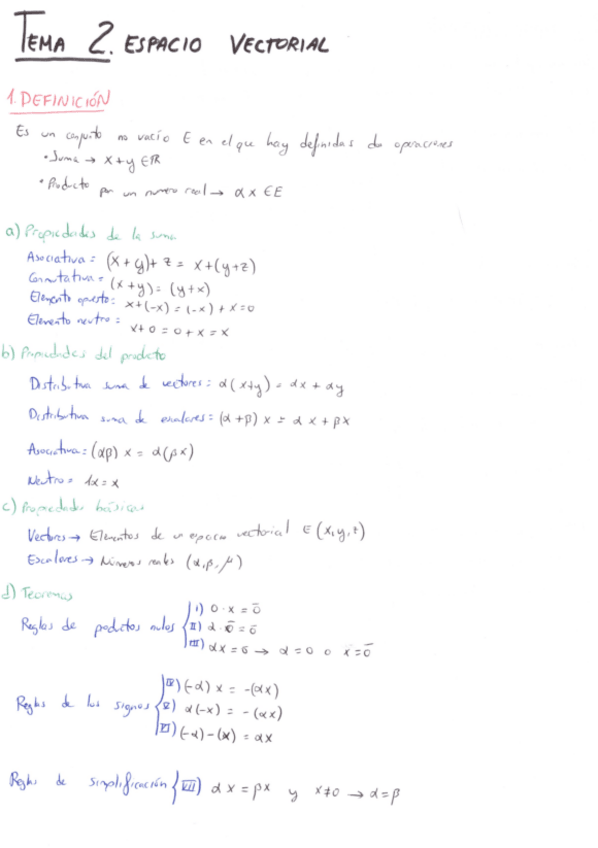 TEMA 2. ESPACIO VECTORIAL
1. DEFINICIÓN
Es un conjunto no vacío E en el que hay definidas dos operaciones
• Suma → x + y ∈ ℝ
• Producto por un numero real → α x ∈ E
a) Propiedades de la suma
Asociativa = (x + y) + z = x + (y + z)
Conmutativa = (x + y) = (y + x)
Elemento opuesto: x + (-x) = (-x) + x = 0
Elemento neutro: x + 0 = 0 + x = x
b) Propiedades del producto
Distributiva suma de vectores = α(x+y) = αx + αy
Distributiva suma de escalares = (α + β) x = α x + β x
Asociativa = (αβ) x = α(βx)
Neutro = 1x = x
c) Propiedades básicas
Vectores → Elementos de un espacio vectorial ∈ (x, y, z)
Escalares → Números reales (α, β, μ)
d) Teoremas
Reglas de productos nulos
I) 0 · x = 0̄
II) α · 0̄ = 0̄
III) αx = 0̄ → α = 0 o x = 0̄
Reglas de los signos
IV) (-α) x = -(αx)
V) α(-x) = -(αx)
VI) (-α) - (x) = αx
Regla de simplificación
VII) α x = βx y x ≠ 0 → α = β